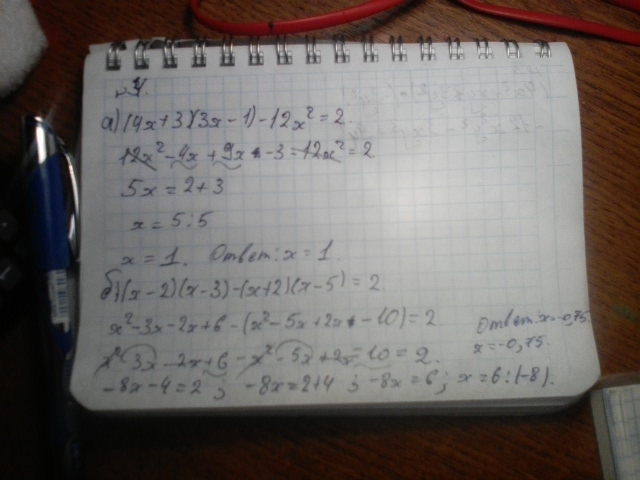 №4.
а) (4x+3)(3x-1)-12x²=2.
12x²-4x+9x-3-12x²=2
5x=2+3
x=5:5
x=1. Ответ: x=1.
б) (x-2)(x-3)-(x+2)(x-5)=2
x²-3x-2x+6-(x²-5x+2x-10)=2
Ответ: x=-0,75.
x=-0,75.
x²-3x-2x+6-x²-5x+2x-10=2.
-8x-4=2; -8x=2+4; -8x=6; x=6:(-8).